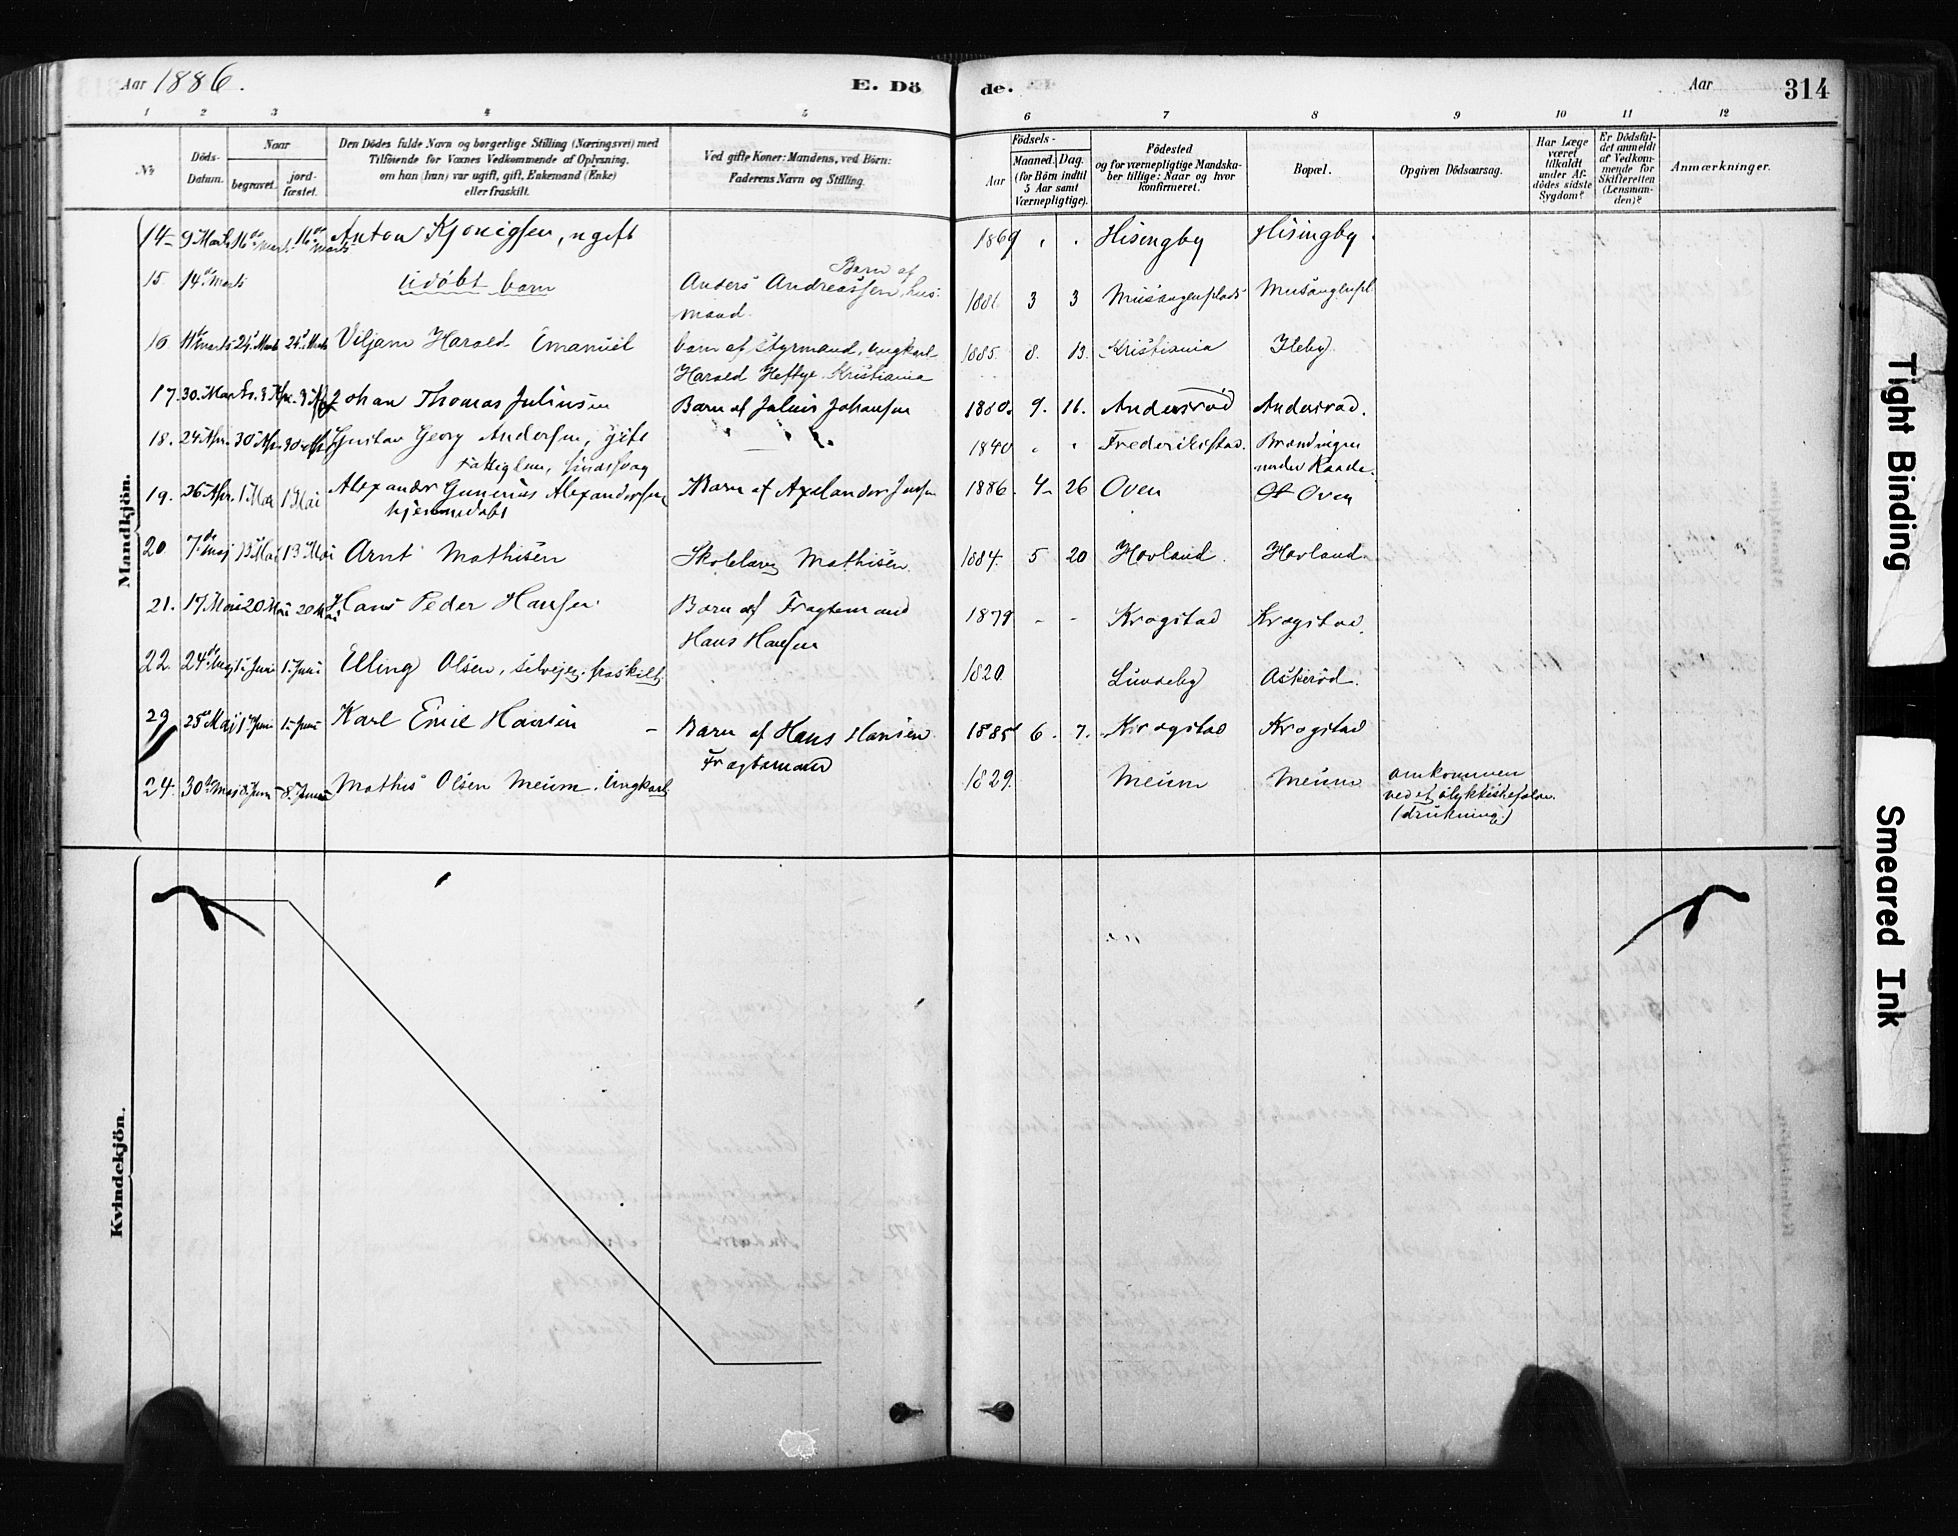 Aar 1886.
E. Dö
de.
Aar
314
1 2 3 4 5 6 7 8 9 10 11 12
No
Döds-Datum.
Naar
begravet.
jord-fæstet.
Den Dödes fulde Navn og borgerlige Stilling (Næringsvei) med
Tilföiende for Voxnes Vedkommende af Oplysning,
om han (hun) var ugift, gift, Enkemand (Enke)
eller fraskilt.
Ved gifte Koner: Mandens, ved Börn:
Faderens Navn og Stilling.
Födsels-
Aar
Maaned. Dag.
(for Börn indtil
5 Aar samt
Værnepligtige).
Födested
og for værnepligtige Mandska-
ber tillige: Naar og hvor
konfirmeret.
Bopæl.
Opgiven Dödsaarsag.
Har Læge
været
tilkaldt
under Af-
dödes sidste
Sygdom?
Er Dödsfal-
det anmeldt
af Vedkom-
mende for
Skifteretten
(Lensman-
den)?
Anmærkninger.
Mandkjön.
14 9 Marts 16 de marts 16 de Marts Anton, ugift 1869 Hisingby Hisingby.
15 14 de Marts Udöbt barn Barn af
Anders Andreassen, hus-
mand. 1886 3 3
16 11 te marts 24 Marts 24 Marts Viljam Harald Emanuel barn af Styrmand, ungkarl 1885. 8. 13. Kristiania Ileby.
Harald Heftye. Kristiania
17. 30. Marts. 9 Apr. 9 Apr. Johan Thomas Juliusen Barn af Julius Johansen 1880. 9. 16. Andersrød Andersrød.
18. 24 Apr. 30 Apr. 30 Apr. Gustav Georg Andersen, gift 1840 Frederikstad.
under Raade.
19. 26 Apr. 1 Mai 1 Mai Alexander Gunerius Alexandersen Barn af 1886. 4 26 Oven Oven
hjemmedøbt
20 7. de Maj 13 Mai 13 Mai Arnt Mathisen Skolelærer Mathisen. 1884. 5 20 Hovland. Hovland.
21. 17 Mai 20 Mai 20 Mai Hans Peder Hansen Barn af Fragtemand 1879 - - Krogstad Krogstad.
Hans Hansen
22 24 de Maj 1. Juni 1. Juni Elling Olsen, selvejer, fraskilt 1820. Lundeby Askerød.
23 25 de Maj 1. Juni 1. Juni Karl Emil Hansen - Barn af Hans Hansen 1885 6. 7. Krogstad Krogstad
Fragtemand
24. 30 te Maj 8. Juni 8. Juni Mathis Olsen Meum. Ungkarl 1829. Meum Meum omkommen
ved et
(drukning.)
Kvindekjön.
Tight Binding
Smeared Ink